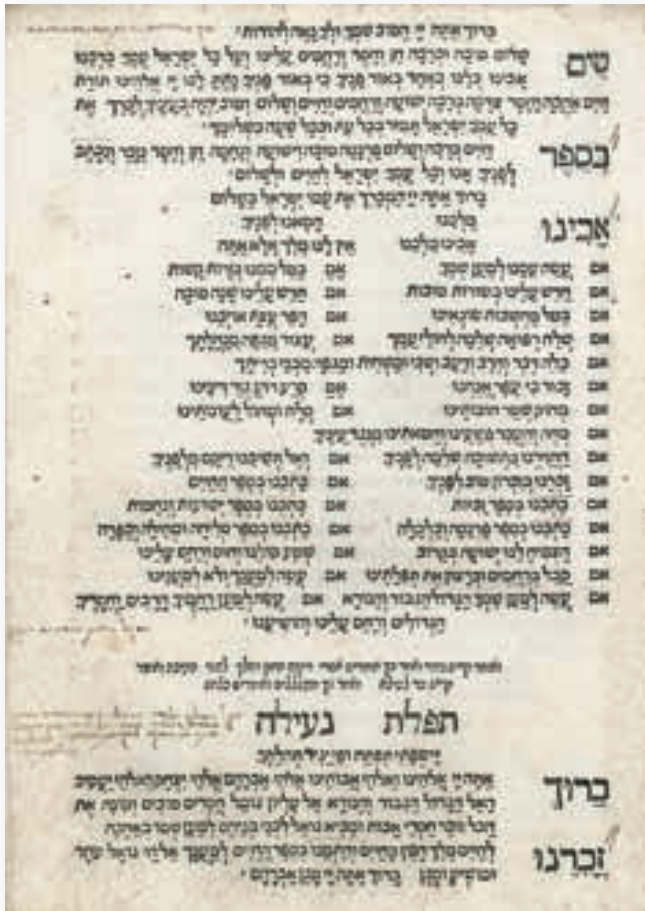 ברוך אתה יי הטוב שמך ולך נאה להודות
שים שלום טובה וברכה חן וחסד ורחמים עלינו ועל כל ישראל עמך ברכנו
אבינו כלנו באור פניך כי באור פניך נתת לנו יי אלהינו תורת
חיים אהבה וחסד צדקה ברכה ישועה ורחמים וחיים ושלום וטוב יהיה בעיניך לברך את
כל עמך ישראל תמיד בכל עת ובכל שעה בשלומך
בספר חיים ברכה ושלום פרנסה טובה וישועה ונחמה חן וחסד נזכר ונכתב
לפניך אנו וכל עמך ישראל לחיים ולשלום
ברוך אתה יי המברך את עמו ישראל בשלום
אבינו מלכנו חטאנו לפניך
אבינו מלכנו אין לנו מלך אלא אתה
אם עשה עמנו למען שמך אם בטל ממנו גזרות קשות
אם חדש עלינו בשורות טובות אם חדש עלינו שנה טובה
אם בטל מחשבות שונאינו אם הפר עצת אויבנו
אם שלח רפואה שלמה לחולי עמך אם עצור מגפה מנחלתך
אם כלה דבר וחרב ורעב ושבי ומשחית ומגפה מבני בריתך
אם זכור כי עפר אנחנו אם קרע רוע גזר דיננו
אם מחוק שטר חובותינו אם סלח ומחול לעונותינו
אם מחה והעבר פשעינו וחטאתינו מנגד עיניך
אם החזירנו בתשובה שלמה לפניך אם ואל תשיבנו ריקם מלפניך
אם זכרנו בזכרון טוב לפניך אם כתבנו בספר החיים
אם כתבנו בספר זכיות אם כתבנו בספר ישועות ונחמות
אם כתבנו בספר פרנסה וכלכלה אם כתבנו בספר סליחה ומחילה וכפרה
אם הצמיח לנו ישועה בקרוב אם שמע קולנו וחוס ורחם עלינו
אם קבל ברחמים וברצון את תפלתינו אם עשה למענך ולא למעננו
אם עשה למען שמך הגדול הגבור והנורא אם עשה למען רחמיך הרבים וחסדיך
הגדולים ורחם עלינו והושיענו
תפלת נעילה
יי שפתי תפתח ופי יגיד תהלתך
ברוך אתה יי אלהינו ואלהי אבותינו אלהי אברהם אלהי יצחק ואלהי יעקב
האל הגדול הגבור והנורא אל עליון גומל חסדים טובים וקונה את
הכל וזוכר חסדי אבות ומביא גואל לבני בניהם למען שמו באהבה
זכרנו לחיים מלך חפץ בחיים וחתמנו בספר החיים למענך אלהי
ומושיע ומגן ברוך אתה יי מגן אברהם